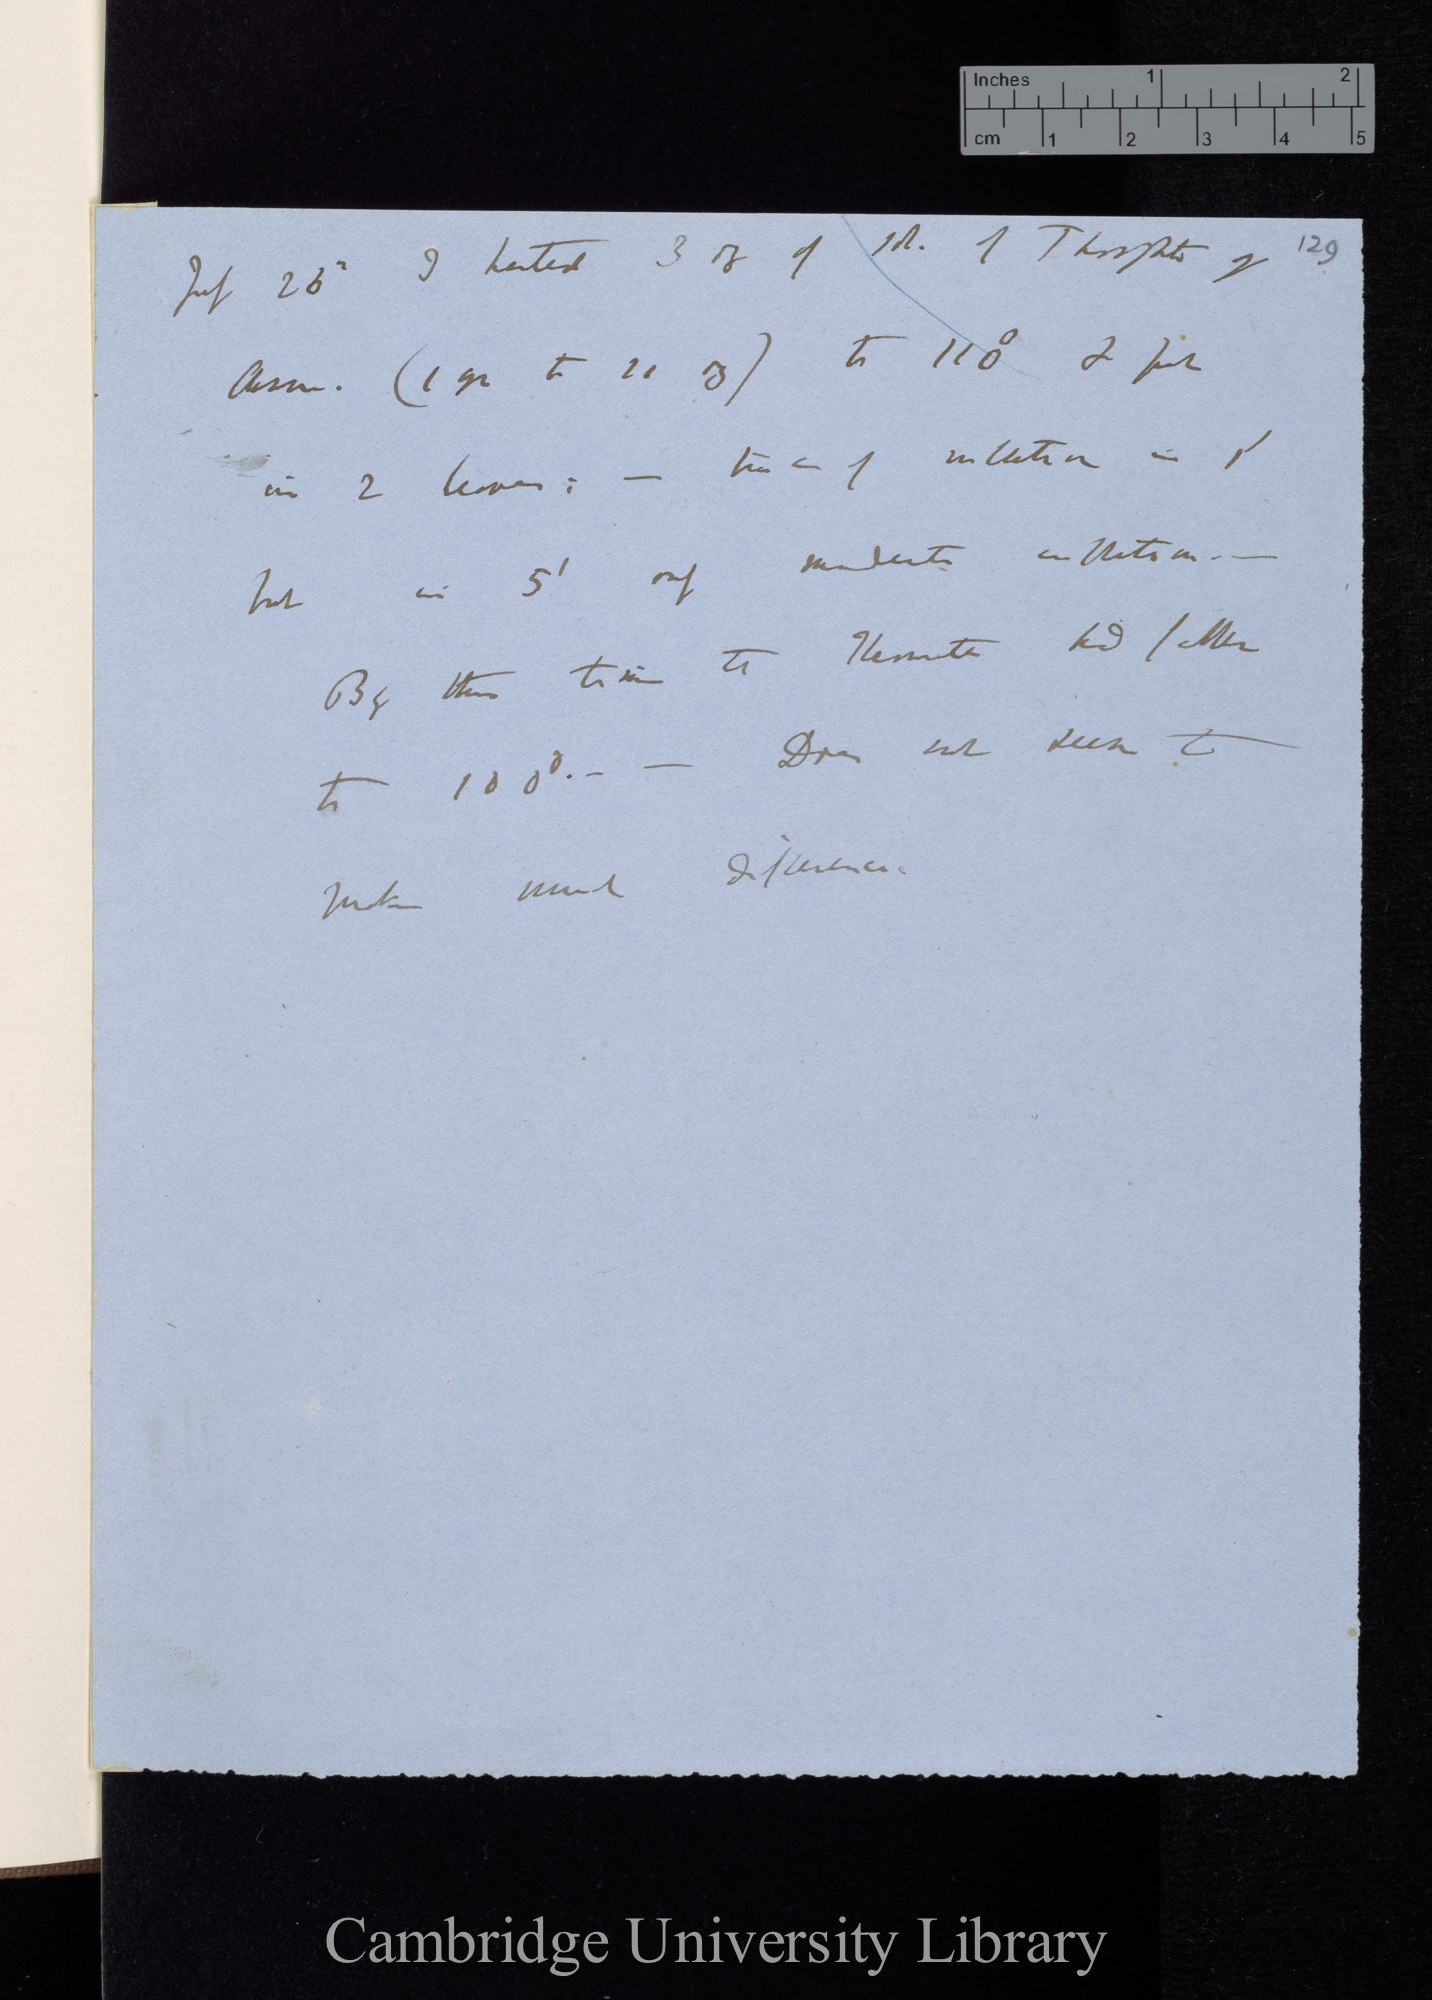 Inches 1 2
cm 1 2 3 4 5
129
July 26th I heated 3 oz of sol. of Phosphate of
Ammon. (1 gr to 20 oz) to 110° & put
in 2 leaves; — trace of inflection in 1'
but in 5' only moderate inflection. —
By this time the Thermometer had fallen
to 100°. — — Does not seem to
make much difference.
Cambridge University Library